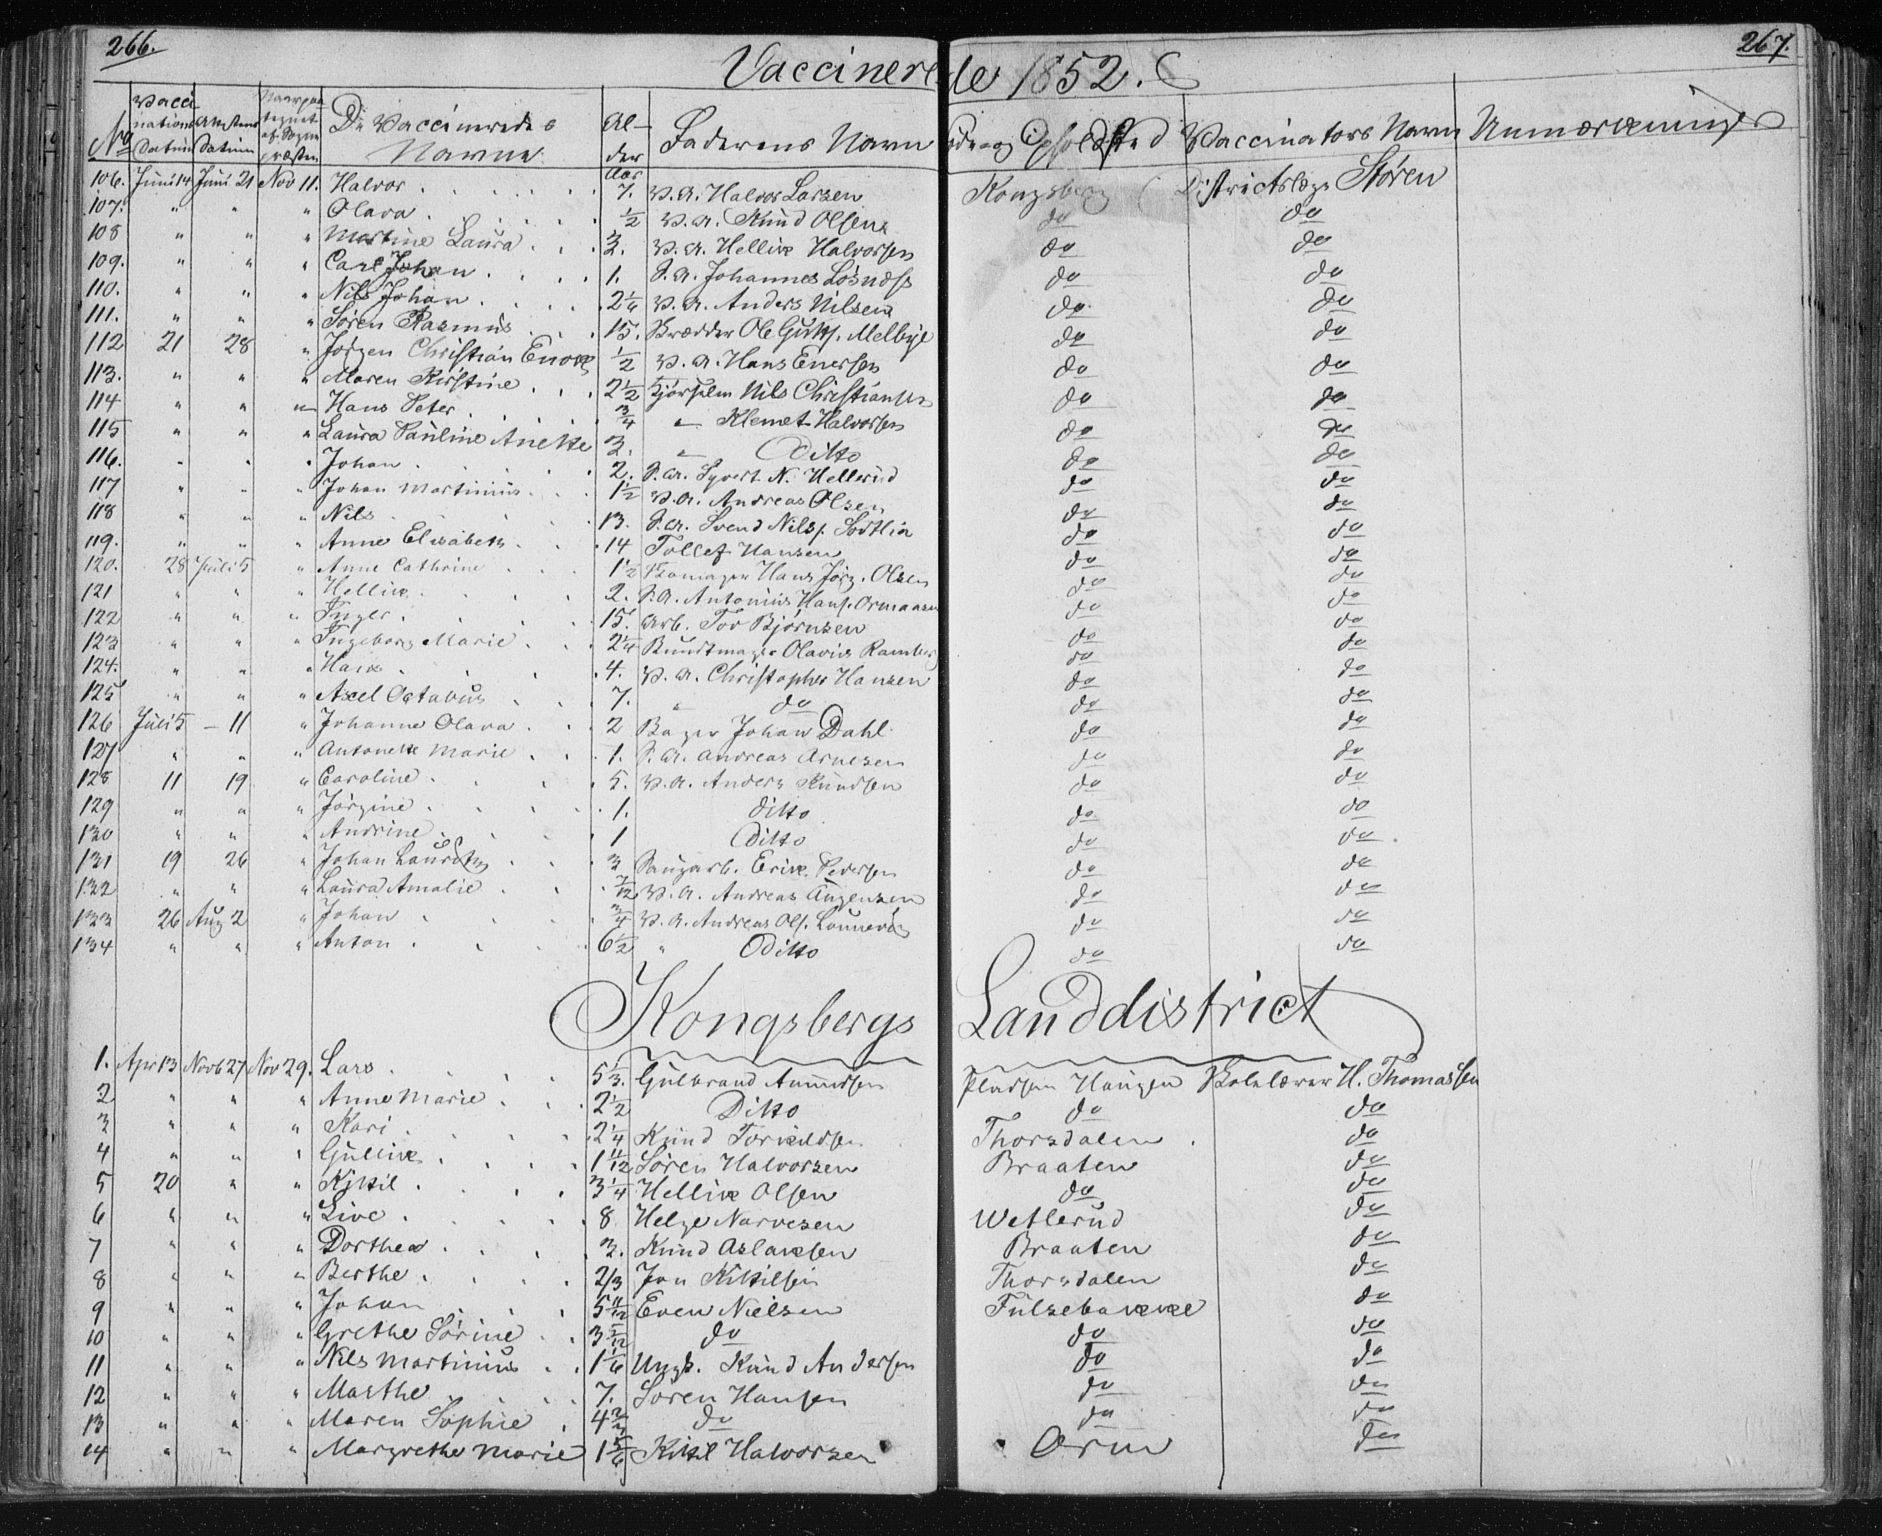 266. 267.
Vaccinerede 1852.
No Vaccinations Datum Attestens Datum Naar paategnet af Sognepræsten De Vaccineredes Navne Alder Aar Faderens Navn og Opholdsted Vaccinators Navn Anmærkninger
106. Juni 14 Juni 21 Nov 11. Halvor 7. V. A. Halvor Larsen Kongsberg Districtslæge Støren
107. " " " Olava 1/2 V. A. Knud Olsen do do
108 " " " Martine Laura V. A. Hellik Halvorsen do do
109. " " " Carl Johan 1. S. A. Johannes Løsnæss do do
110. " " " Nils Johan 2 1/4 V. A. Anders Nilsen do do
111. " " " Søren Rasmus 15. Ole Melbye do do
112 21 28 " Jørgen Christian Enok 1/2 V. A. Hans Enersen do do
113. " " " Maren Kirstine 2 1/2 Nils Christiansen do do
114 " " " Hans Peter 3/4 " Klemet Halvorsen do do
115 " " " Laura Pauline Anette 3. " Ditto do do
116. " " " Johan 2. S. A. Syvert N. Hellerud do do
117 " " " Johan Martinius 1 1/2 V. A. Andreas Olsen do do
118 " " " Nils 13. S. A. Svend Nils. do do
119. " " " Anne Elisabeth 14 Tollef Hansen do do
120. 28 Juli 5 " Anne Cathrine 1 1/2 Hans Jørg. Olsen do do
121 " " " Hellik 2. S. A. Antonius Hans. do do
122 " " " Inger 15. Arb. Tov Bjørnsen do do
123 " " " Ingeborg Marie 2 1/4 Buntmager Olavus Ramberg do do
124. " " " 4. V. A. Christopher Hansen do do
125 " " " Axel Octavus 7. " do do do
126 Juli 5 – 11 " Johanne Olava 2 Bager Johan Dahl do do
127 " " " Antonette Marie 1. S. A. Andreas Arnesen do do
128 11 19 " Caroline 5. V. A. Anders Knudsen do do
129 " " " Jørgine 1. ditto do do
130 " " " Andrine 1 Ditto do do
131 19 26 " Johan Lauritz 3 Saugarb. Erik Pedersen do do
132 " " " Laura Amalie 7/12 V. A. Andreas Augensen do do
133 26 Aug 2 " Johan 3/4 V. A. Andreas Ols. do do
134 " " " Anton 6 1/2 " Ditto do do
Kongsbergs Landdistrict
1. Apr 13 Novb 27 Nov 29. Lars 5 1/3. Gulbrand Amundsen Pladsen Haugen Skolelærer H. Thomassen
2 " " " Anne Marie 2 1/2 Ditto do do
3 " " " Kari 2 1/4 Knud Torkildsen Thorsdalen do
4 " " " Gulik 1 11/12 Søren Halvorsen Braaten do
5 20 " " Kjitil 3 1/4 Hellik Olsen do do
6 " " " Live 8 Helge Narvesen Wetlerud do
7 " " " Dorthea 3. Knud Aslaksen Braaten do
8 " " " Berthe 2/3 Jon Kittilsen Thorsdalen do
9 " " " Johan 5 11/12 Even Nielsen Fulsebakke do
10 " " " Grethe Sørine 3 5/12 do do do
11 " " " Nils Martinius 1 1/6 Ungk. Knud Andersen do do
12 " " " Marthe 7. Søren Hansen do do
13 " " " Maren Sophie 4 do do do
14 " " " Margrethe Marie 1 5/6 Kittil Halvorsen Orm do